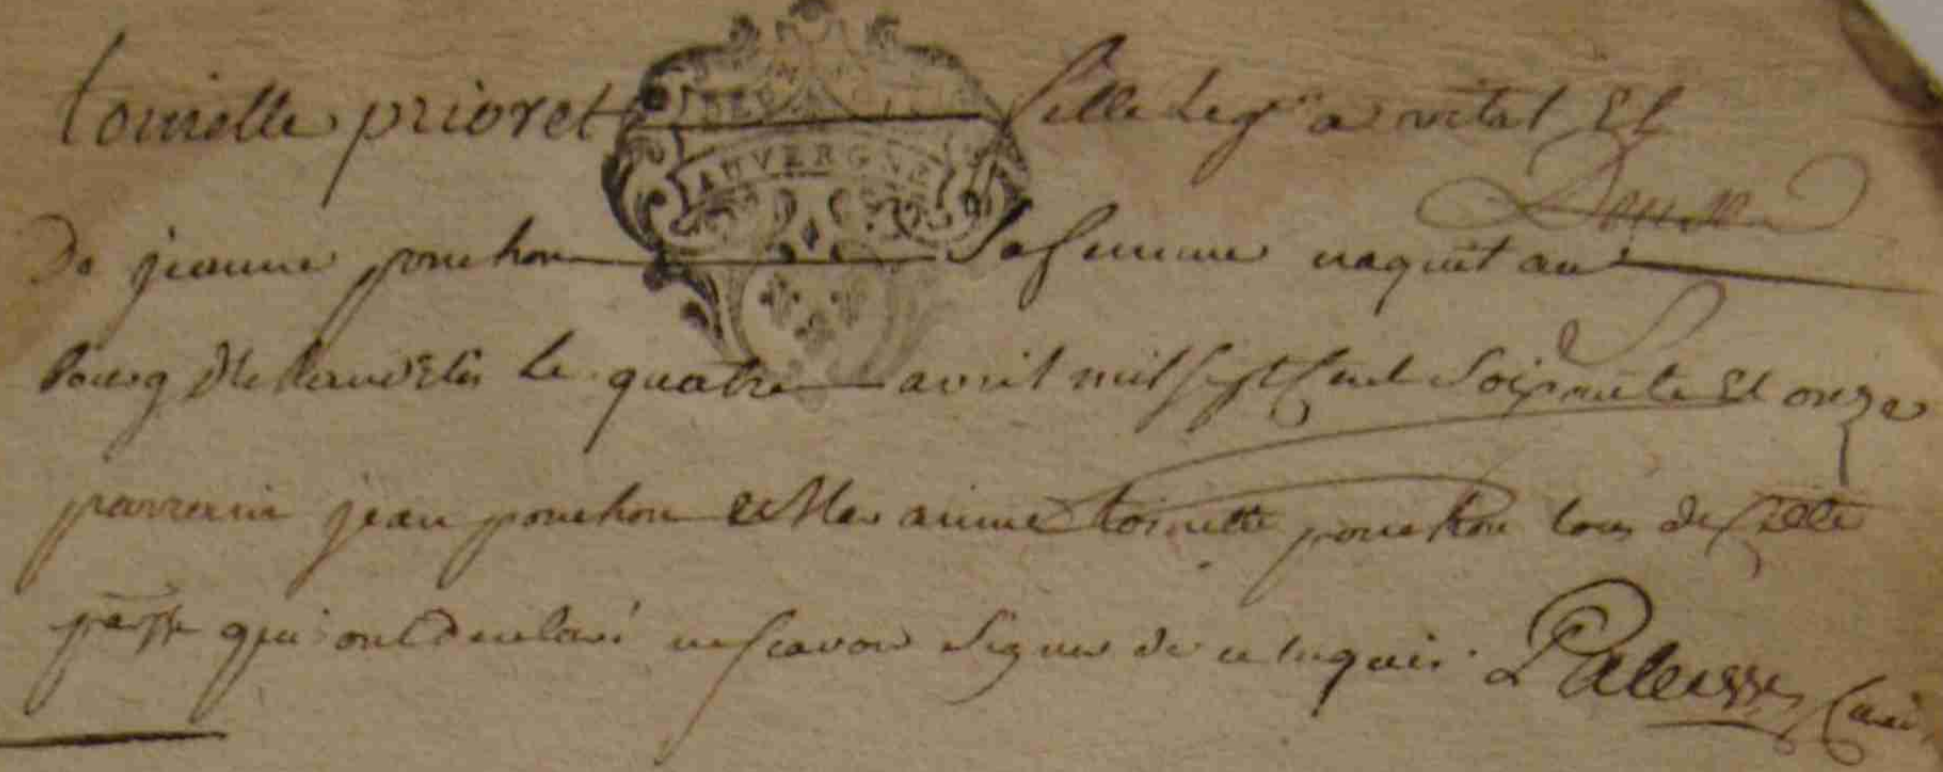 toinette prioret fille leg.e a vital Et
AUVERGNE
De jeanne pouchon sa femme naquit au
bourg de le quatre avril mil sept cent soixante Et onze
parrain jean pouchon et Maraine toinette pouchon tous de cette
parsse qui ont declaré ne scavoir signer de ce requis.